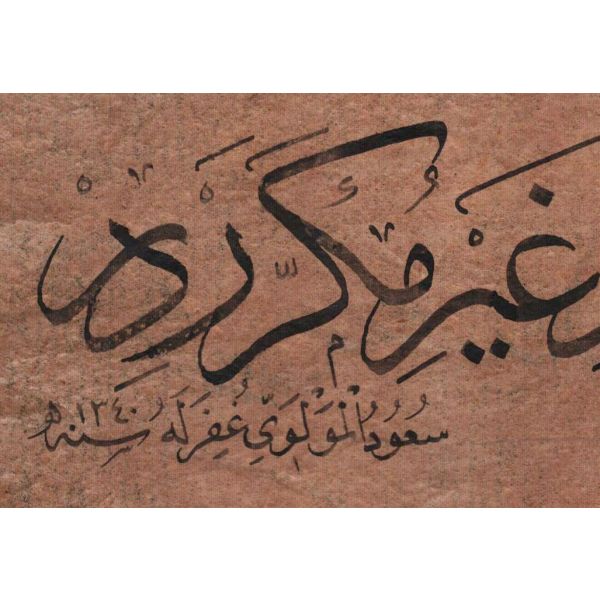 غَيْرِ مُكَرَّرَه
سُعُودُ الْمَوْلَوِيّ غُفِرَ لَهُ سنه ١٣٤٠ هـ